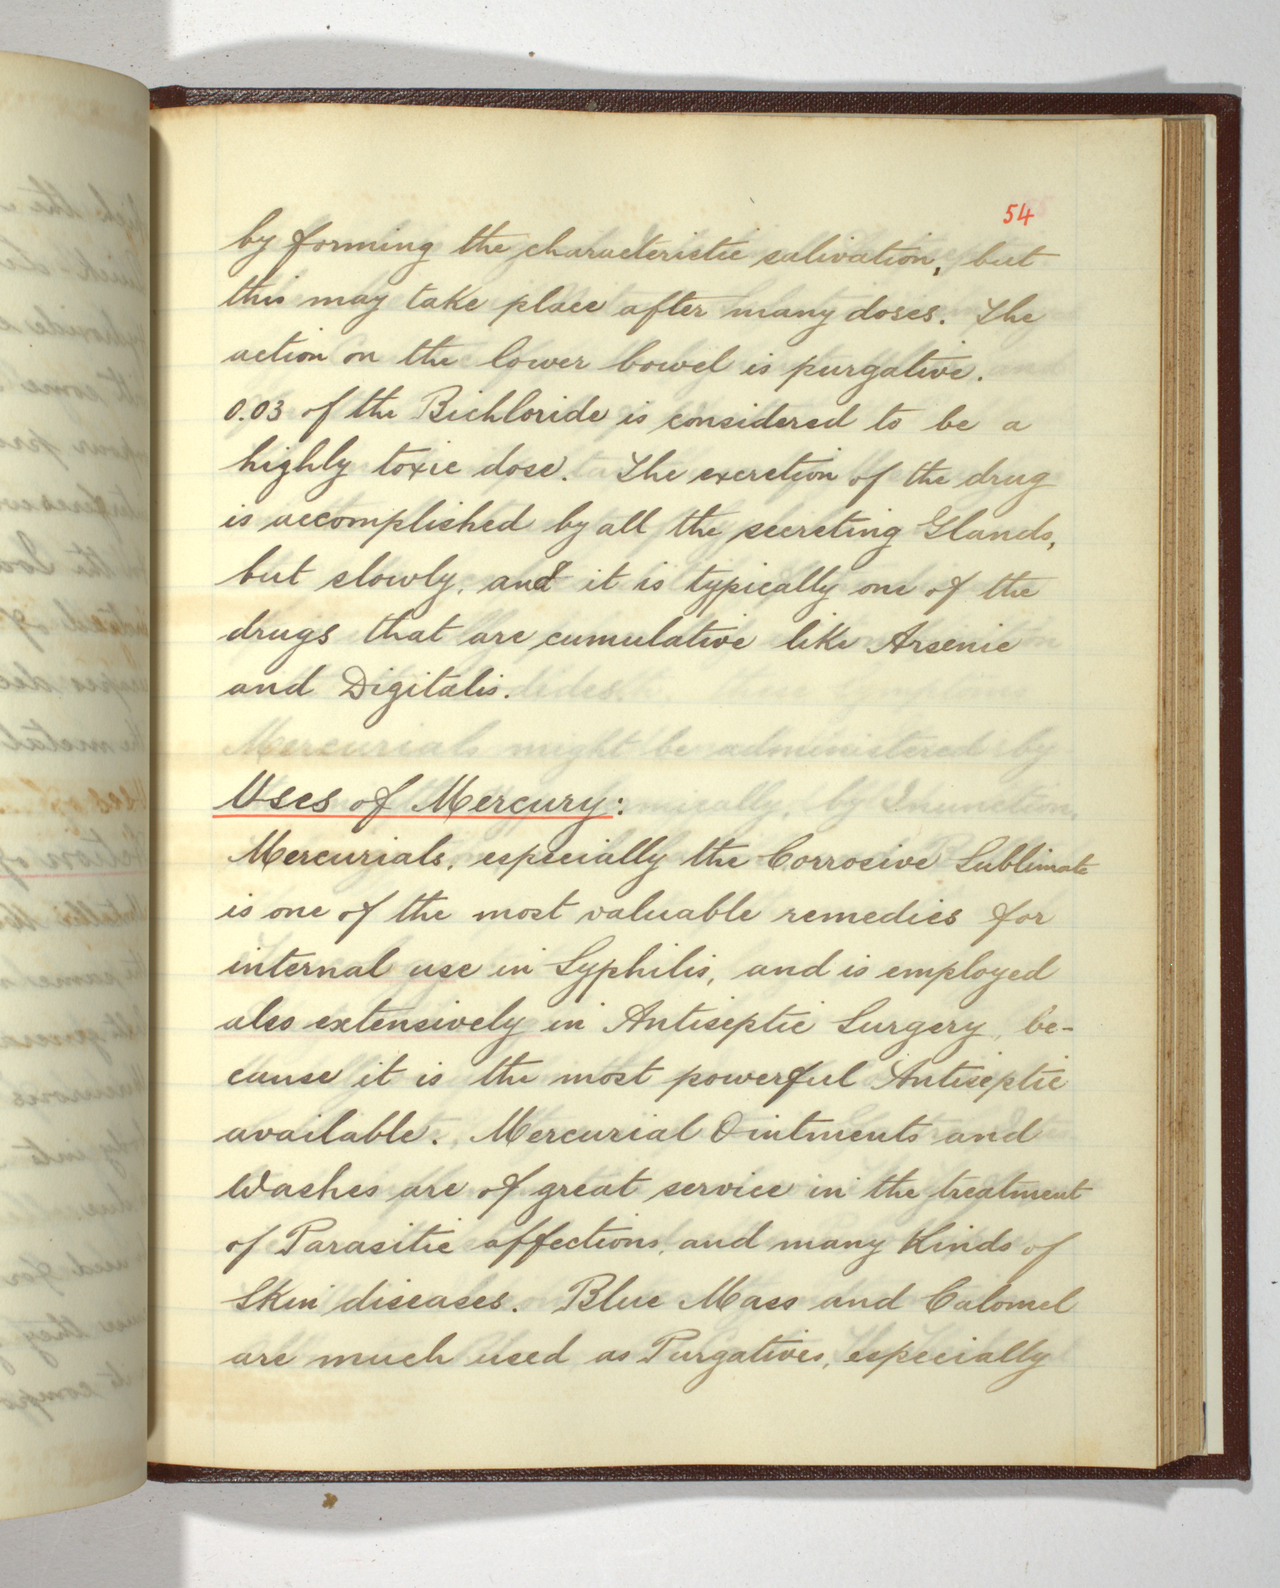 54
by forming the characteristic salivation, but
this may take place after many doses. The
action on the lower bowel is purgative.
0.03 of the Bichloride is considered to be a
highly toxic dose. The excretion of the drug
is accomplished by all the secreting Glands,
but slowly, and it is typically one of the
drugs that are cumulative like Arsenic
and Digitalis.
Uses of Mercury:
Mercurials, especially the Corrosive Sublimate
is one of the most valuable remedies for
internal use in Syphilis, and is employed
also extensively in Antiseptic Surgery, be-
cause it is the most powerful Antiseptic
available. Mercurial Ointments and
Washes are of great service in the treatment
of Parasitic affections, and many Kinds of
Skin diseases. Blue Mass and Calomel
are much used as Purgatives, especially